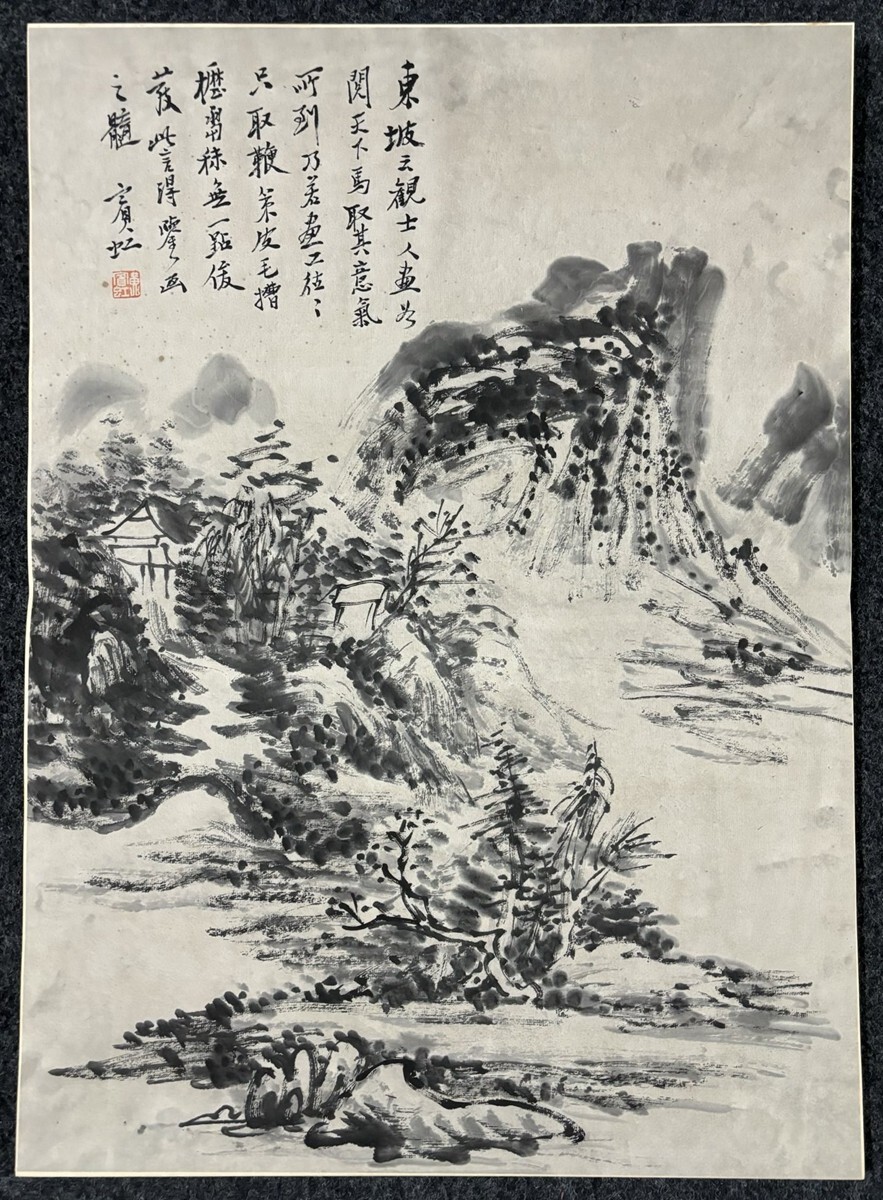 東坡云觀士人畫如
閱天下馬取其意氣
所到乃若畫工往〻
只取鞭策皮毛槽
櫪芻秣無一點俊
發此言得鑒画
之髓 賓虹
黃賓虹